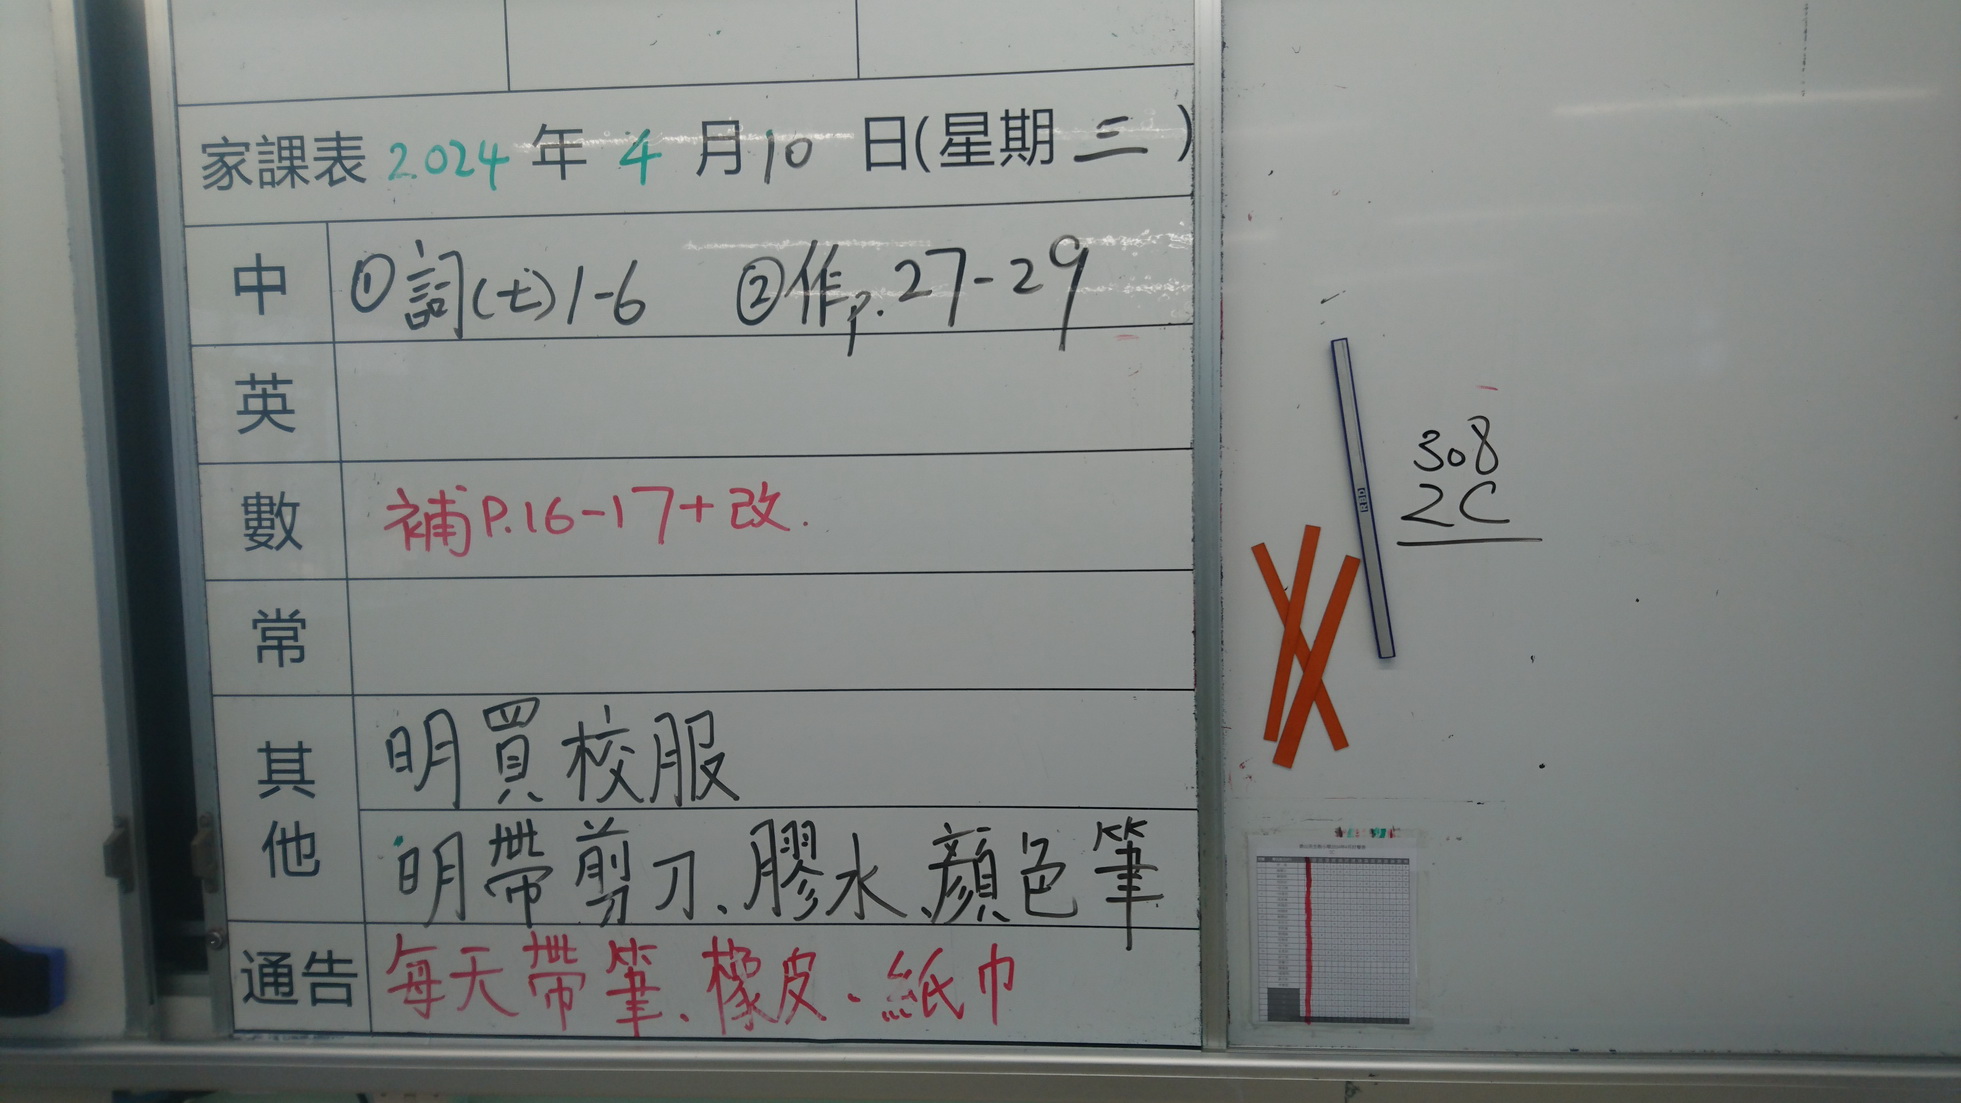 家課表 2024 年 4 月 10 日(星期 三 )
中 ①詞(七)1-6 ②作p.27-29
英
數 補P.16-17+改.
常
其他 明買校服
明帶剪刀、膠水、顏色筆
通告 每天帶筆、橡皮、紙巾
308
2C